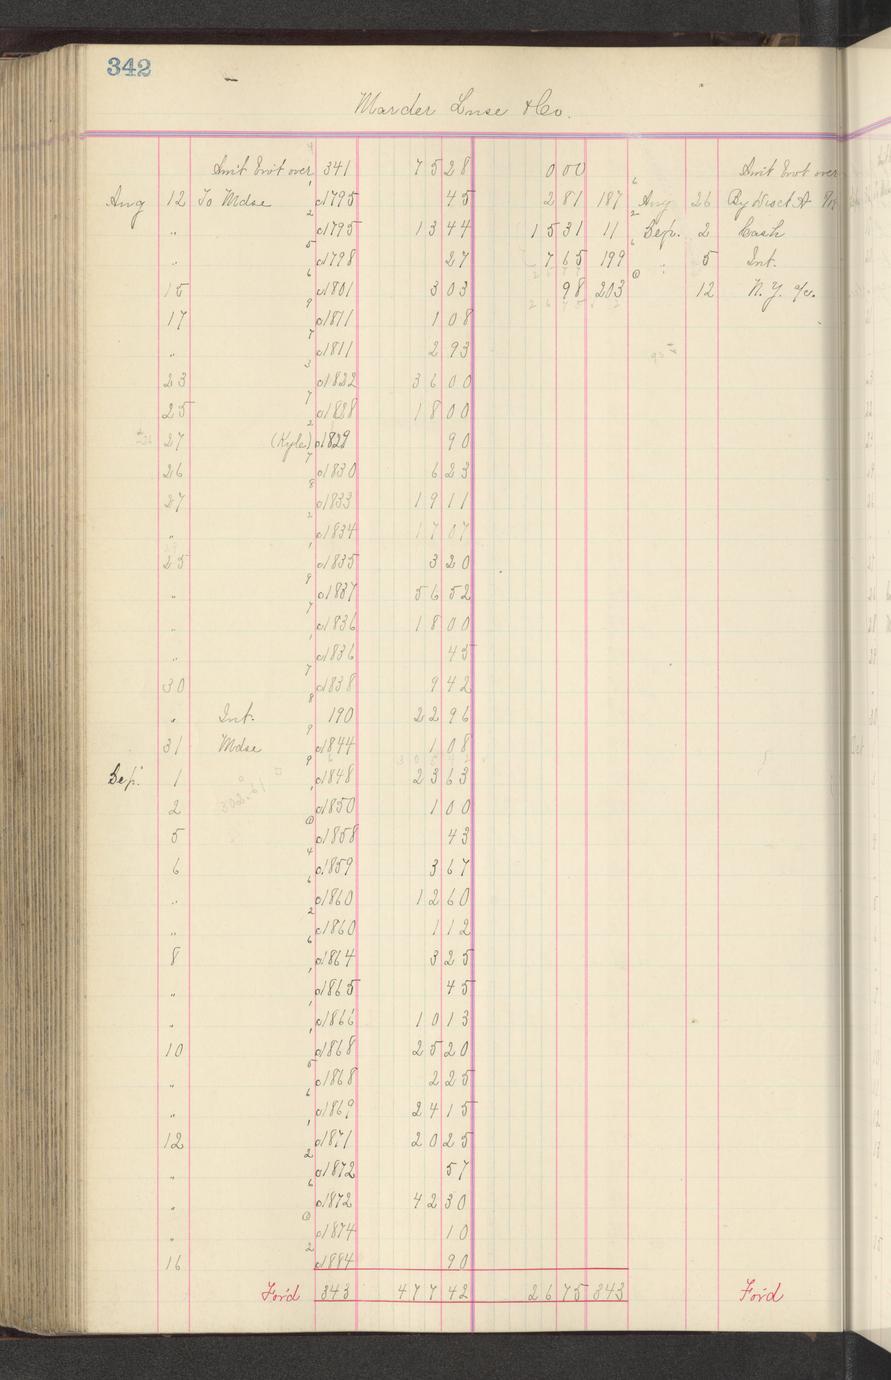 342
Marder Luse & Co.
Am't Brot over 341 75 28 0 00 Am't Brot over
Aug 12 To Mdse 1795 45 2 81 187 Aug 26 By Disct A
" 1795 13 44 15 31 11 Sep. 2 Cash
" 1798 27 7 65 199 " 5 Int.
15 1801 3 03 98 203 12 N.Y. a/c.
17 1811 1 08
" 1811 2 93
23 1822 36 00
25 1828 18 00
27 (Kyle) 1829 90
26 1830 6 23
27 1833 19 11
" 1834 17 07
25 1835 3 20
" 1837 56 52
" 1836 18 00
" 1836 45
30 1838 9 42
" Int. 190 22 96
31 Mdse 1844 1 08
Sep. 1 1848 23 63
2 1850 1 00
5 1858 43
6 1859 3 67
" 1860 12 60
" 1860 1 12
8 1864 3 25
" 1865 45
" 1866 10 13
10 1868 25 20
" 1868 2 25
" 1869 24 15
12 1871 20 25
" 1872 57
" 1872 42 30
" 1874 10
16 1884 90
For'd 343 477 42 26 75 343 For'd